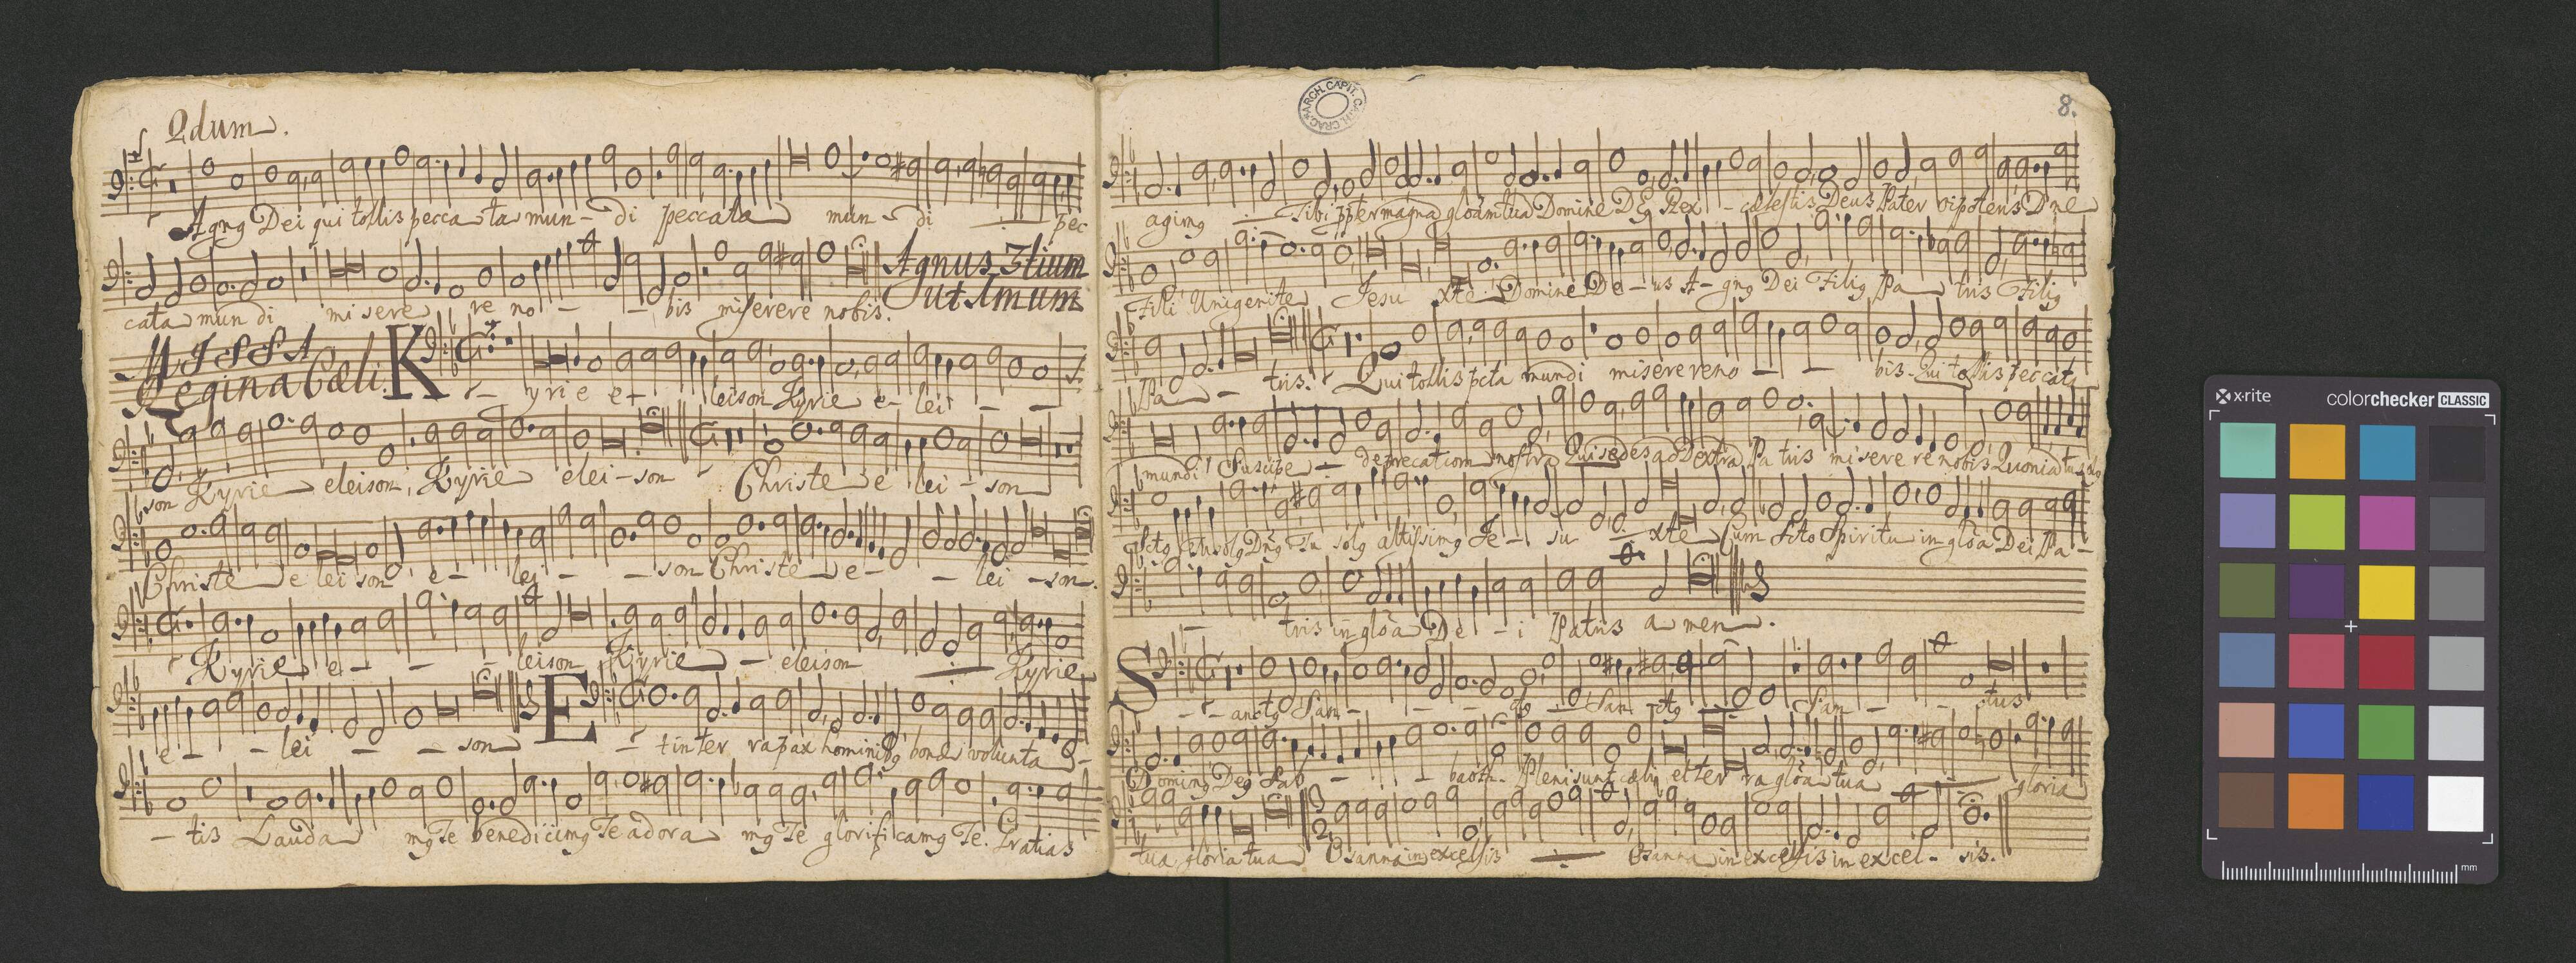 2dum.
Agnꝰ Dei qui tollis pecca-ta mun-di peccata mun-di pec
cata mundi misere re no-bis miserere nobis. Agnus 3tium
ut 1mum
MISSA
Regina Cæli. K-yrie e-leison Kyrie e-lei-
son Kyrie eleison, Kyrie elei-son Christe e lei-son
Christe e lei son e-lei-son Christe e-lei-son.
Kyrie e-leison Kyrie-eleison Kyrie
e-lei-son Et in ter ra pax hominibꝰ bonæ volunta
-tis Lauda mꝰ Te benedicimꝰ Te adora mꝰ Te glorificamꝰ Te. Gratias
8.
ARCH. CAPIT. CATH. CRAC.
agimꝰ Tibi ppter magnã gloãm tuã Domine Deꝰ Rex-cælestis Deus Pater oipotens Dne
Fili Unigenite Jesu xte Domine De-us A-gnꝰ Dei Filiꝰ Pa tris Filiꝰ
Pa-tris. Qui tollis pcta mundi miserere no-bis. Qui tollis peccata
mundi Suscipe deprecationem nostrã Qui sedes ad Dextrã Pa tris misere re nobis Quoniã tu solꝰ
Sctꝰ Tu solꝰ Dnꝰ Tu solꝰ altissimꝰ Je-su xte Cum Scto Spiritu in glõa Dei Pa-
tris in glõa De-i Patris amen.
S-anctꝰ San-ctꝰ San ctꝰ San-ctus
Dominꝰ Deꝰ Sab-baoth. Pleni sunt cæli et ter ra glõa tua gloria
tua gloria tua Osanna in excelsis Osanna in excelsis in excel-sis.
x-rite colorchecker CLASSIC
mm